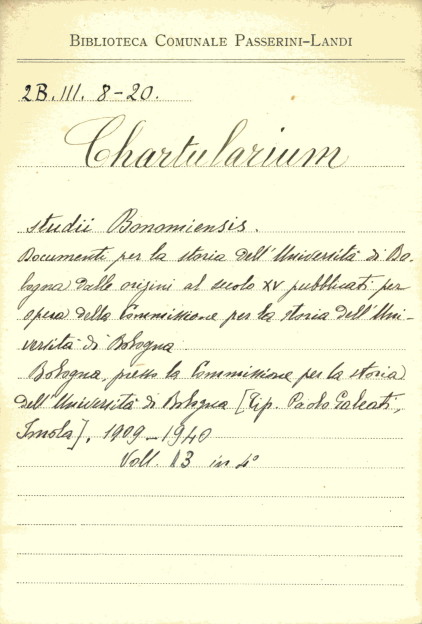 BIBLIOTECA COMUNALE PASSERINI-LANDI
2B. III. 8-20.
Chartularium
studii Bonomiensis.
Documenti per la storia dell'Università di Bo-
logna dalle origini al secolo XV pubblicati per
opera della Commissione per la storia dell'Uni-
versità di Bologna
Bologna, presso la Commissione per la storia
dell'Università di Bologna [Tip. Paolo Galeati,
Imola], 1909-1940
Voll. 13 in 4°